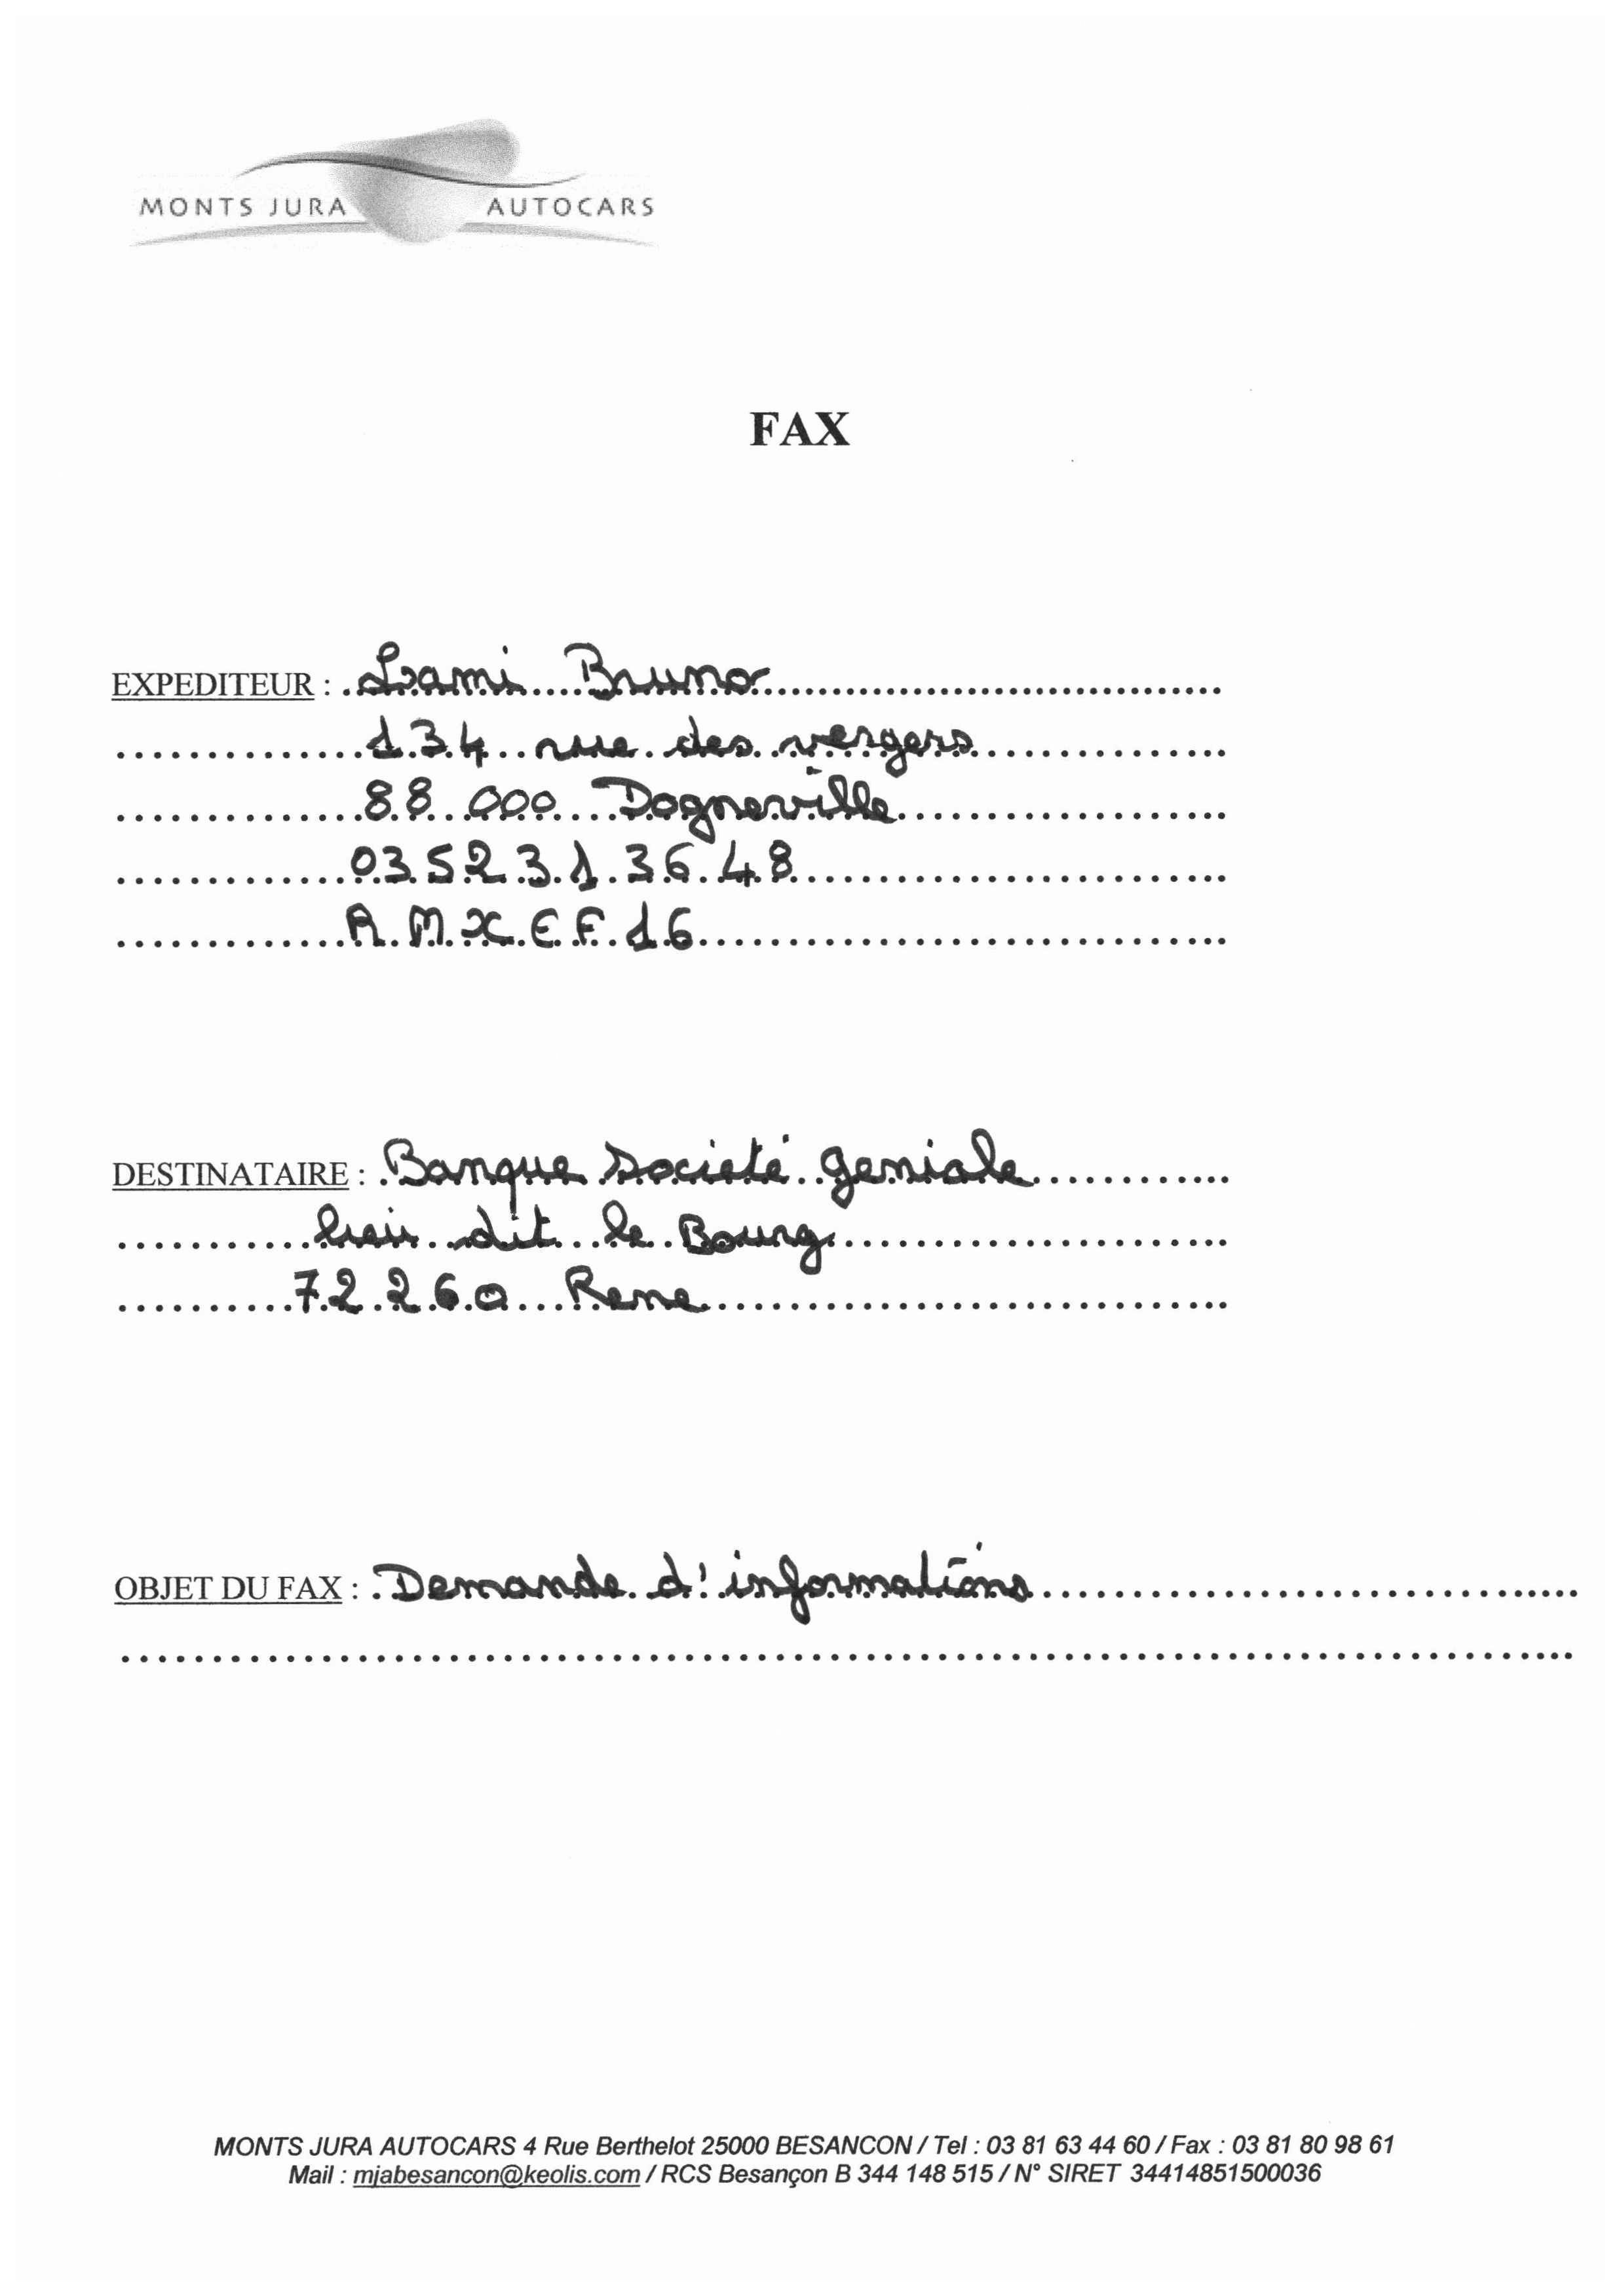 MONTS JURA AUTOCARS
FAX
EXPEDITEUR : Lsami Bruno
134 rue des vergers
88 000 Dogneville
03 52 31 36 48
AMXEF16
DESTINATAIRE : Banque société geniale
lieu dit le Bourg
72260 Rene
OBJET DU FAX : Demande d'informations
MONTS JURA AUTOCARS 4 Rue Berthelot 25000 BESANCON / Tel : 03 81 63 44 60 / Fax : 03 81 80 98 61
Mail : mjabesancon@keolis.com / RCS Besançon B 344 148 515 / N° SIRET 34414851500036